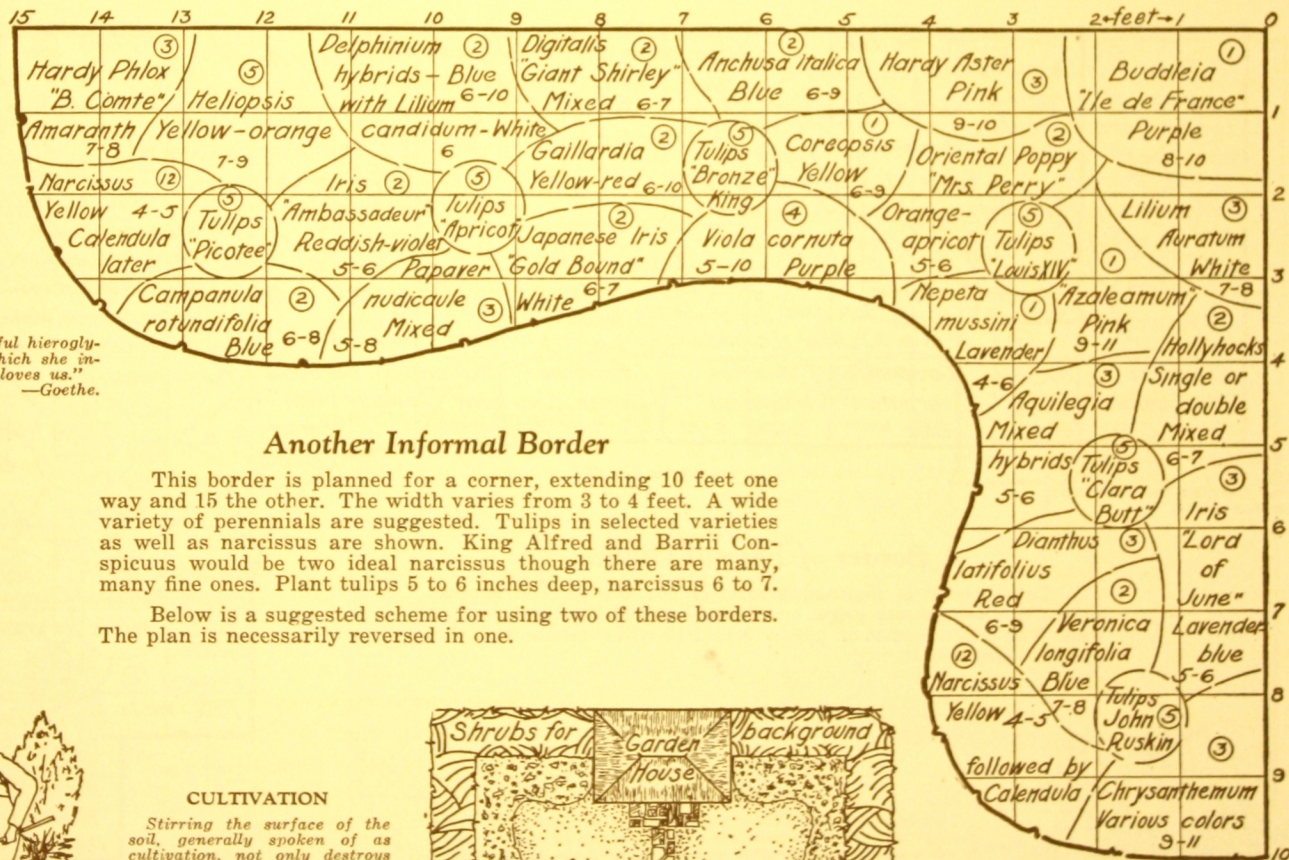 15 14 13 12 11 10 9 8 7 6 5 4 3 2 ←feet→ 1 0
1
2
3
4
5
6
7
8
9
10
③
Hardy Phlox
"B. Comte"
Amaranth
7-8
⑤
Heliopsis
Yellow-orange
7-9
Delphinium ②
hybrids - Blue
with Lilium 6-10
candidum - White
6
Digitalis ②
"Giant Shirley"
Mixed 6-7
②
Anchusa italica
Blue 6-9
Hardy Aster
Pink ③
9-10
①
Buddleia
"Ile de France"
Purple
8-10
Narcissus ⑫
Yellow 4-5
Calendula
later
⑤
Tulips
"Picotee"
Iris ②
"Ambassadeur"
Reddish-violet
5-6
⑤
Tulips
"Apricot"
Gaillardia ②
Yellow-red 6-10
⑤
Tulips
"Bronze
King
①
Coreopsis
Yellow
6-9
②
Oriental Poppy
"Mrs. Perry"
Orange-
apricot
5-6
⑤
Tulips
"Louis XIV"
Lilium ③
Auratum
White
7-8
②
Japanese Iris
"Gold Bound"
White 6-7
④
Viola cornuta
5-10 Purple
Campanula ②
rotundifolia
Blue 6-8
Papaver
nudicaule
Mixed ③
5-8
Nepeta
mussini ①
Lavender
4-6
①
"Azaleamum"
Pink
9-11
②
Hollyhocks
Single or
double
Mixed
6-7
③
Aquilegia
Mixed
hybrids
5-6
⑤
Tulips
"Clara
Butt"
③
Iris
"Lord
of
June"
Lavender-
blue
5-6
Dianthus ③
latifolius
Red
6-9
②
Veronica
longifolia
Blue
7-8
⑫
Narcissus
Yellow 4-5
followed by
Calendula
Tulips
John ⑤
Ruskin
③
Chrysanthemum
Various colors
9-11
ful hierogly-
hich she in-
loves us."
—Goethe.
Another Informal Border
This border is planned for a corner, extending 10 feet one
way and 15 the other. The width varies from 3 to 4 feet. A wide
variety of perennials are suggested. Tulips in selected varieties
as well as narcissus are shown. King Alfred and Barrii Con-
spicuus would be two ideal narcissus though there are many,
many fine ones. Plant tulips 5 to 6 inches deep, narcissus 6 to 7.
Below is a suggested scheme for using two of these borders.
The plan is necessarily reversed in one.
Shrubs for
Garden
House
background
CULTIVATION
Stirring the surface of the
soil, generally spoken of as
cultivation, not only destroys